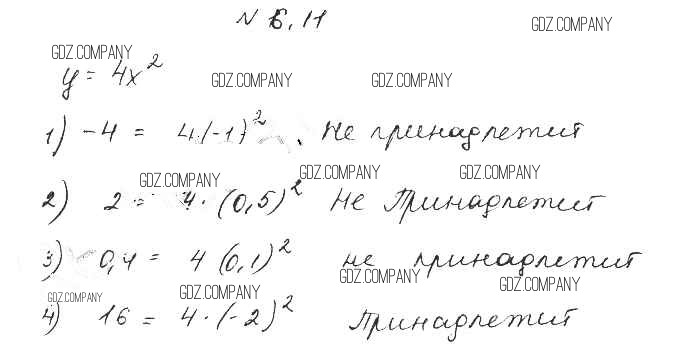 N 6.11
GDZ.COMPANY
GDZ.COMPANY
y = 4x²
GDZ.COMPANY
GDZ.COMPANY
1) -4 = 4(-1)². Не принадлежит
GDZ.COMPANY
GDZ.COMPANY
GDZ.COMPANY
2) 2 = 4·(0,5)² Не Принадлежит
3) 0,4 = 4(0,1)² не принадлежит
GDZ.COMPANY
GDZ.COMPANY
GDZ.COMPANY
GDZ.COMPANY
4) 16 = 4·(-2)² Принадлежит